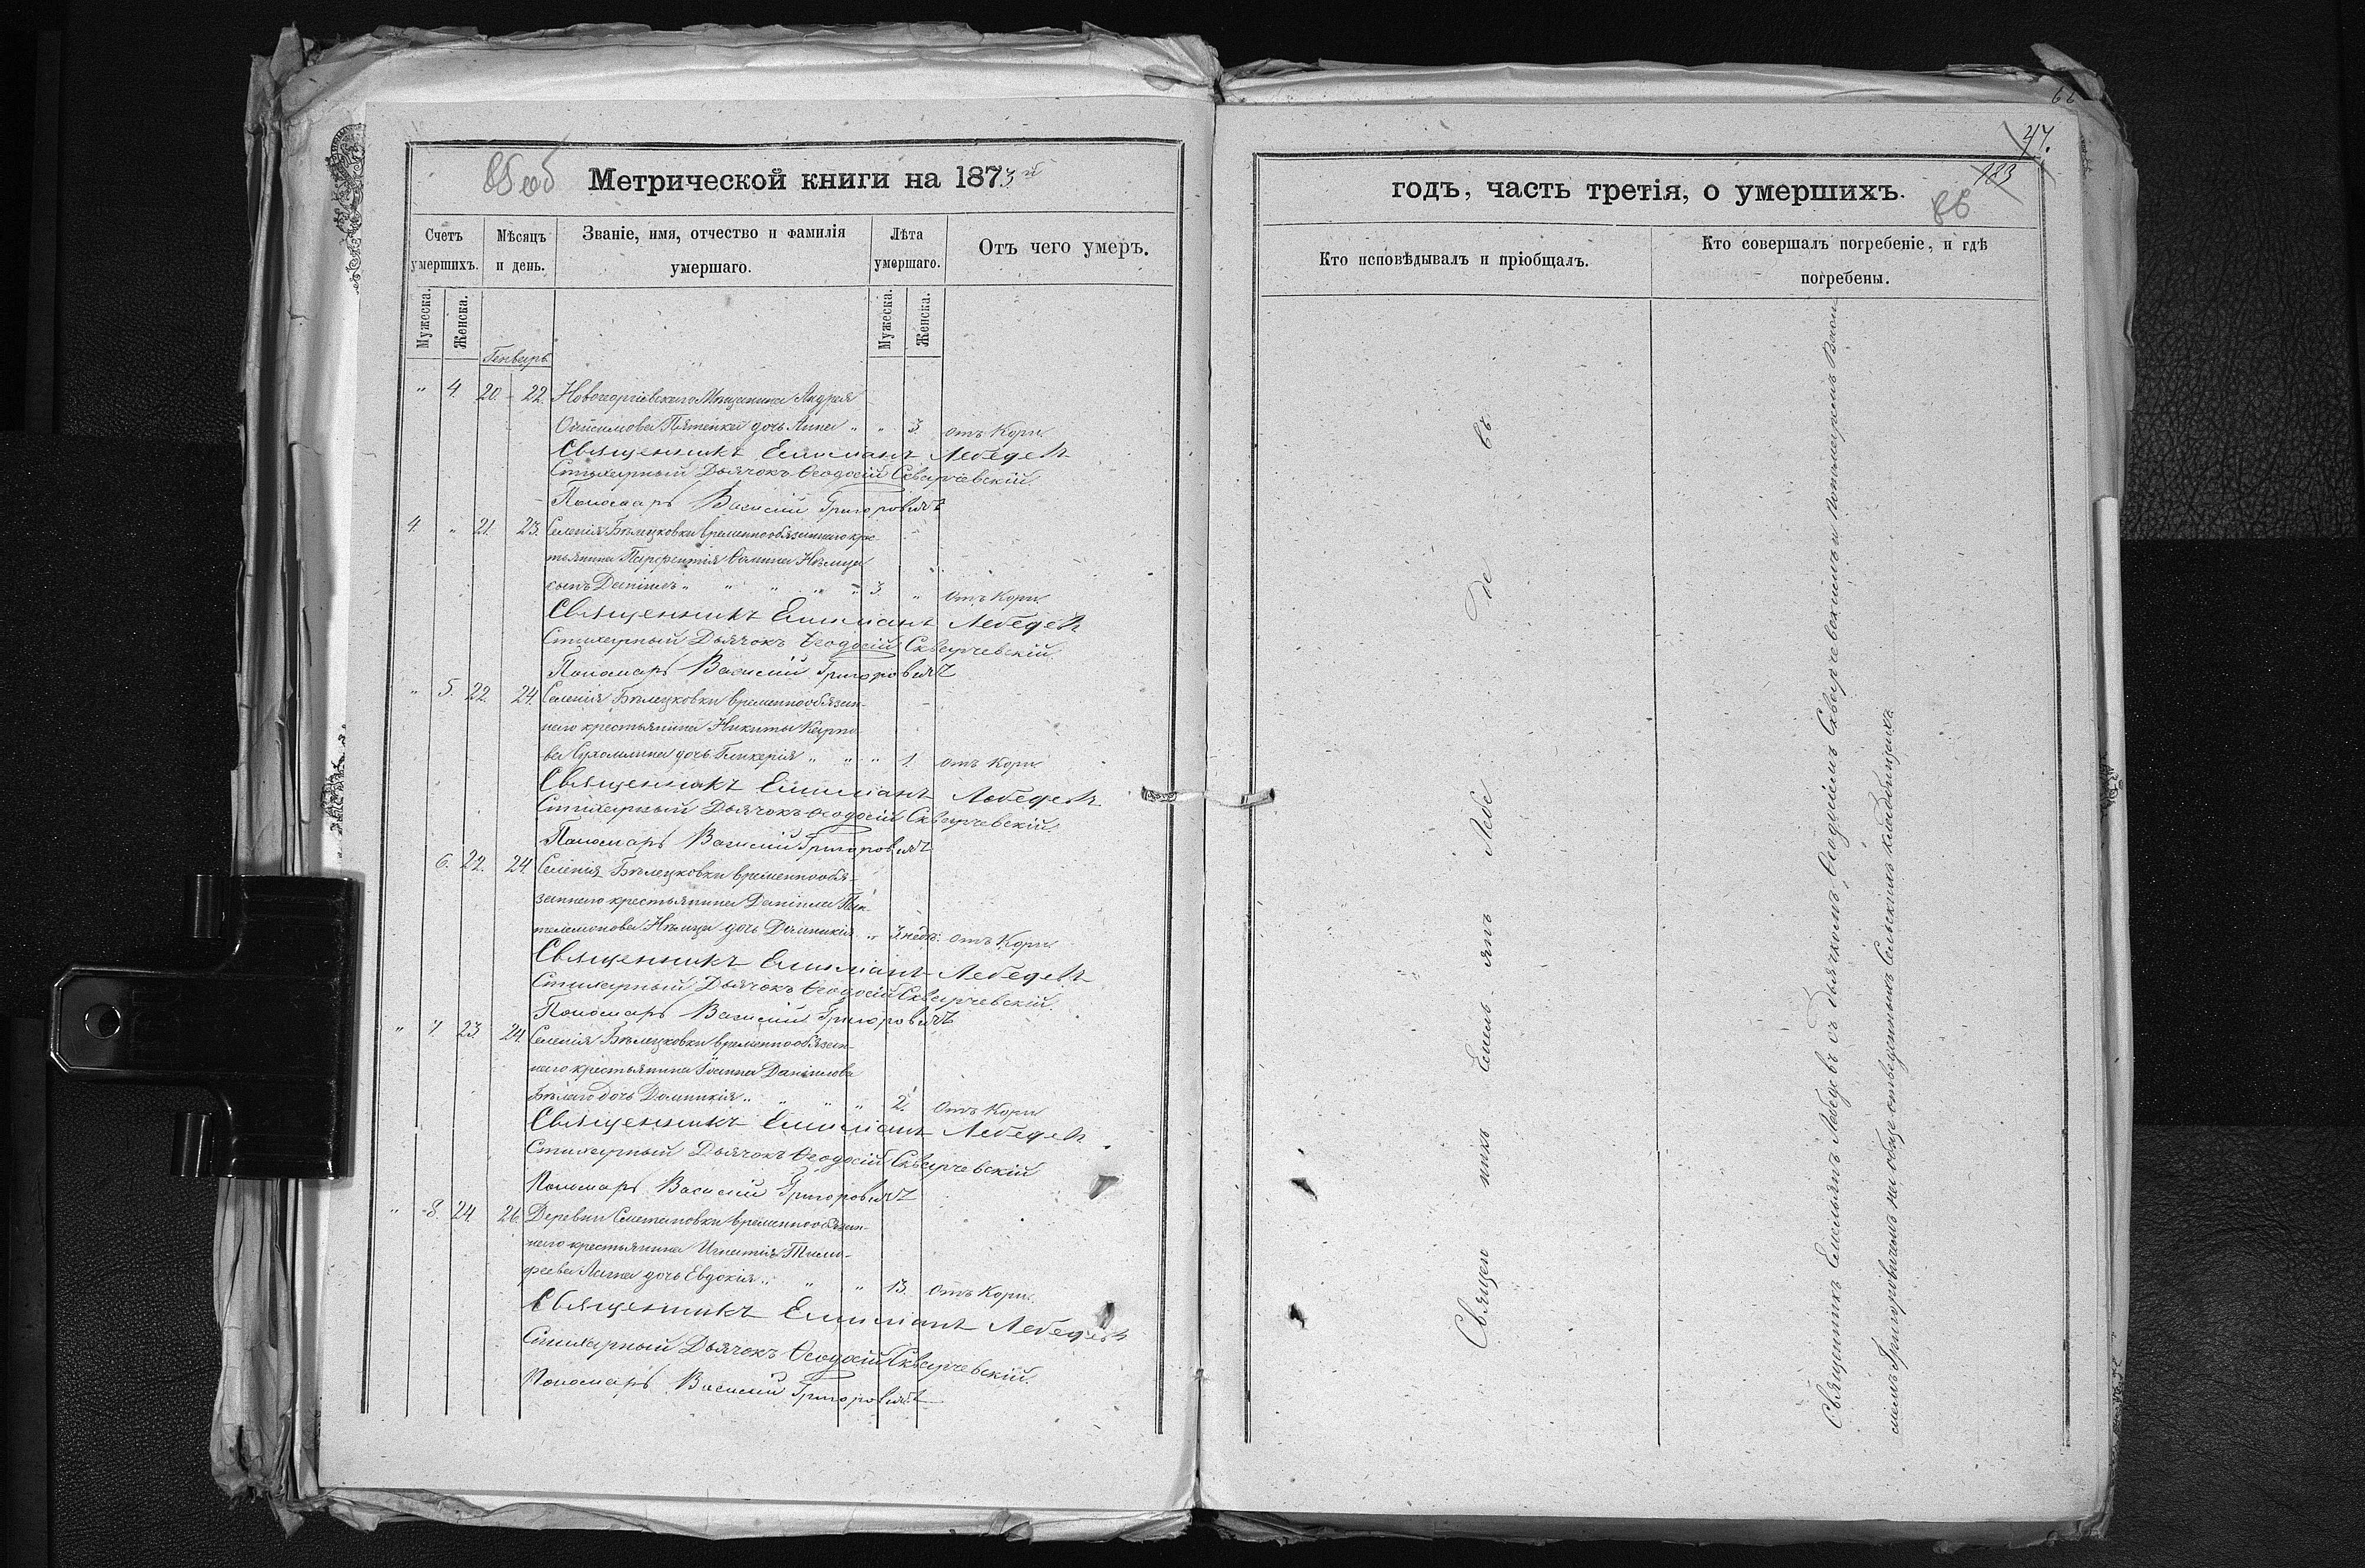 85 об
Метрической книги на 1873й
Счетъ умершихъ.
Мѣсяцъ и день.
Званіе, имя, отчество и фамилія умершаго.
Лѣта умершаго.
Отъ чего умеръ.
Мужеска.
Женска.
Мужеска.
Женска.
Генварь
" 4. 20. 22. Новогеоргіевскаго Мѣщанина Андрея
дочь Анна " " 3. отъ Кори.
Священникъ Емиліанъ Лебедевъ
Стихарный Дьячокъ Ѳеодосій Скварчевскій.
Пономарь Василій Григоровичъ
4. " 21. 23. Селенія Бѣлецковки временнообязаннаго кре-
стьянина Парфентія Ѳомина Нѣмца
сынъ Даніилъ " " " " " 3. " Отъ Кори.
Священникъ Емиліанъ Лебедевъ
Стихарный Дьячокъ Ѳеодосій Скварчевскій.
Пономарь Василій Григоровичъ
" 5. 22. 24. Селенія Бѣлецковки временнообязан-
наго крестьянина Никиты Карпо-
ва Сухомлина дочь Гликерія " " " 1. отъ Кори
Священникъ Емиліанъ Лебедевъ
Стихарный Дьячокъ Ѳеодосій Скварчевскій.
Пономарь Василій Григоровичъ
6. 22. 24. Селенія Бѣлецковки временнообя-
заннаго крестьянина Даніила Пан-
телемонова Нѣмца дочь Домникія " 3 недѣ: отъ Кори.
Священникъ Емиліанъ Лебедевъ
Стихарный Дьячокъ Ѳеодосій Скварчевскій.
Пономарь Василій Григоровичъ
" 7. 23. 24. Селенія Бѣлецковки временнообязан-
наго крестьянина Іоанна Даніилова
Бѣлаго дочь Домникія " " " " 2. Отъ Кори
Священникъ Емиліанъ Лебедевъ
Стихарный Дьячокъ Ѳеодосій Скварчевскій
Пономарь Василій Григоровичъ
" 8. 24. 26. Деревни временнообязан-
наго крестьянина Игнатія Тимо-
феева дочь Евдокія " " " 13. Отъ Кори.
Священникъ Емиліанъ Лебедевъ
Стихарный Дьячокъ Ѳеодосій Скварчевскій.
Пономарь Василій Григоровичъ
62
47.
183
86
годъ, часть третія, о умершихъ.
Кто исповѣдывалъ и пріобщалъ.
Кто совершалъ погребеніе, и гдѣ погребены.
Священ никъ Емиль янъ Лебе де въ
Священникъ Емельянъ Лебедевъ съ дьячкомъ Ѳеодосіемъ Скварчевскимъ и пономаремъ Васи-
ліемъ Григоровичемъ на обще отведенныхъ Сельскихъ кладбищахъ